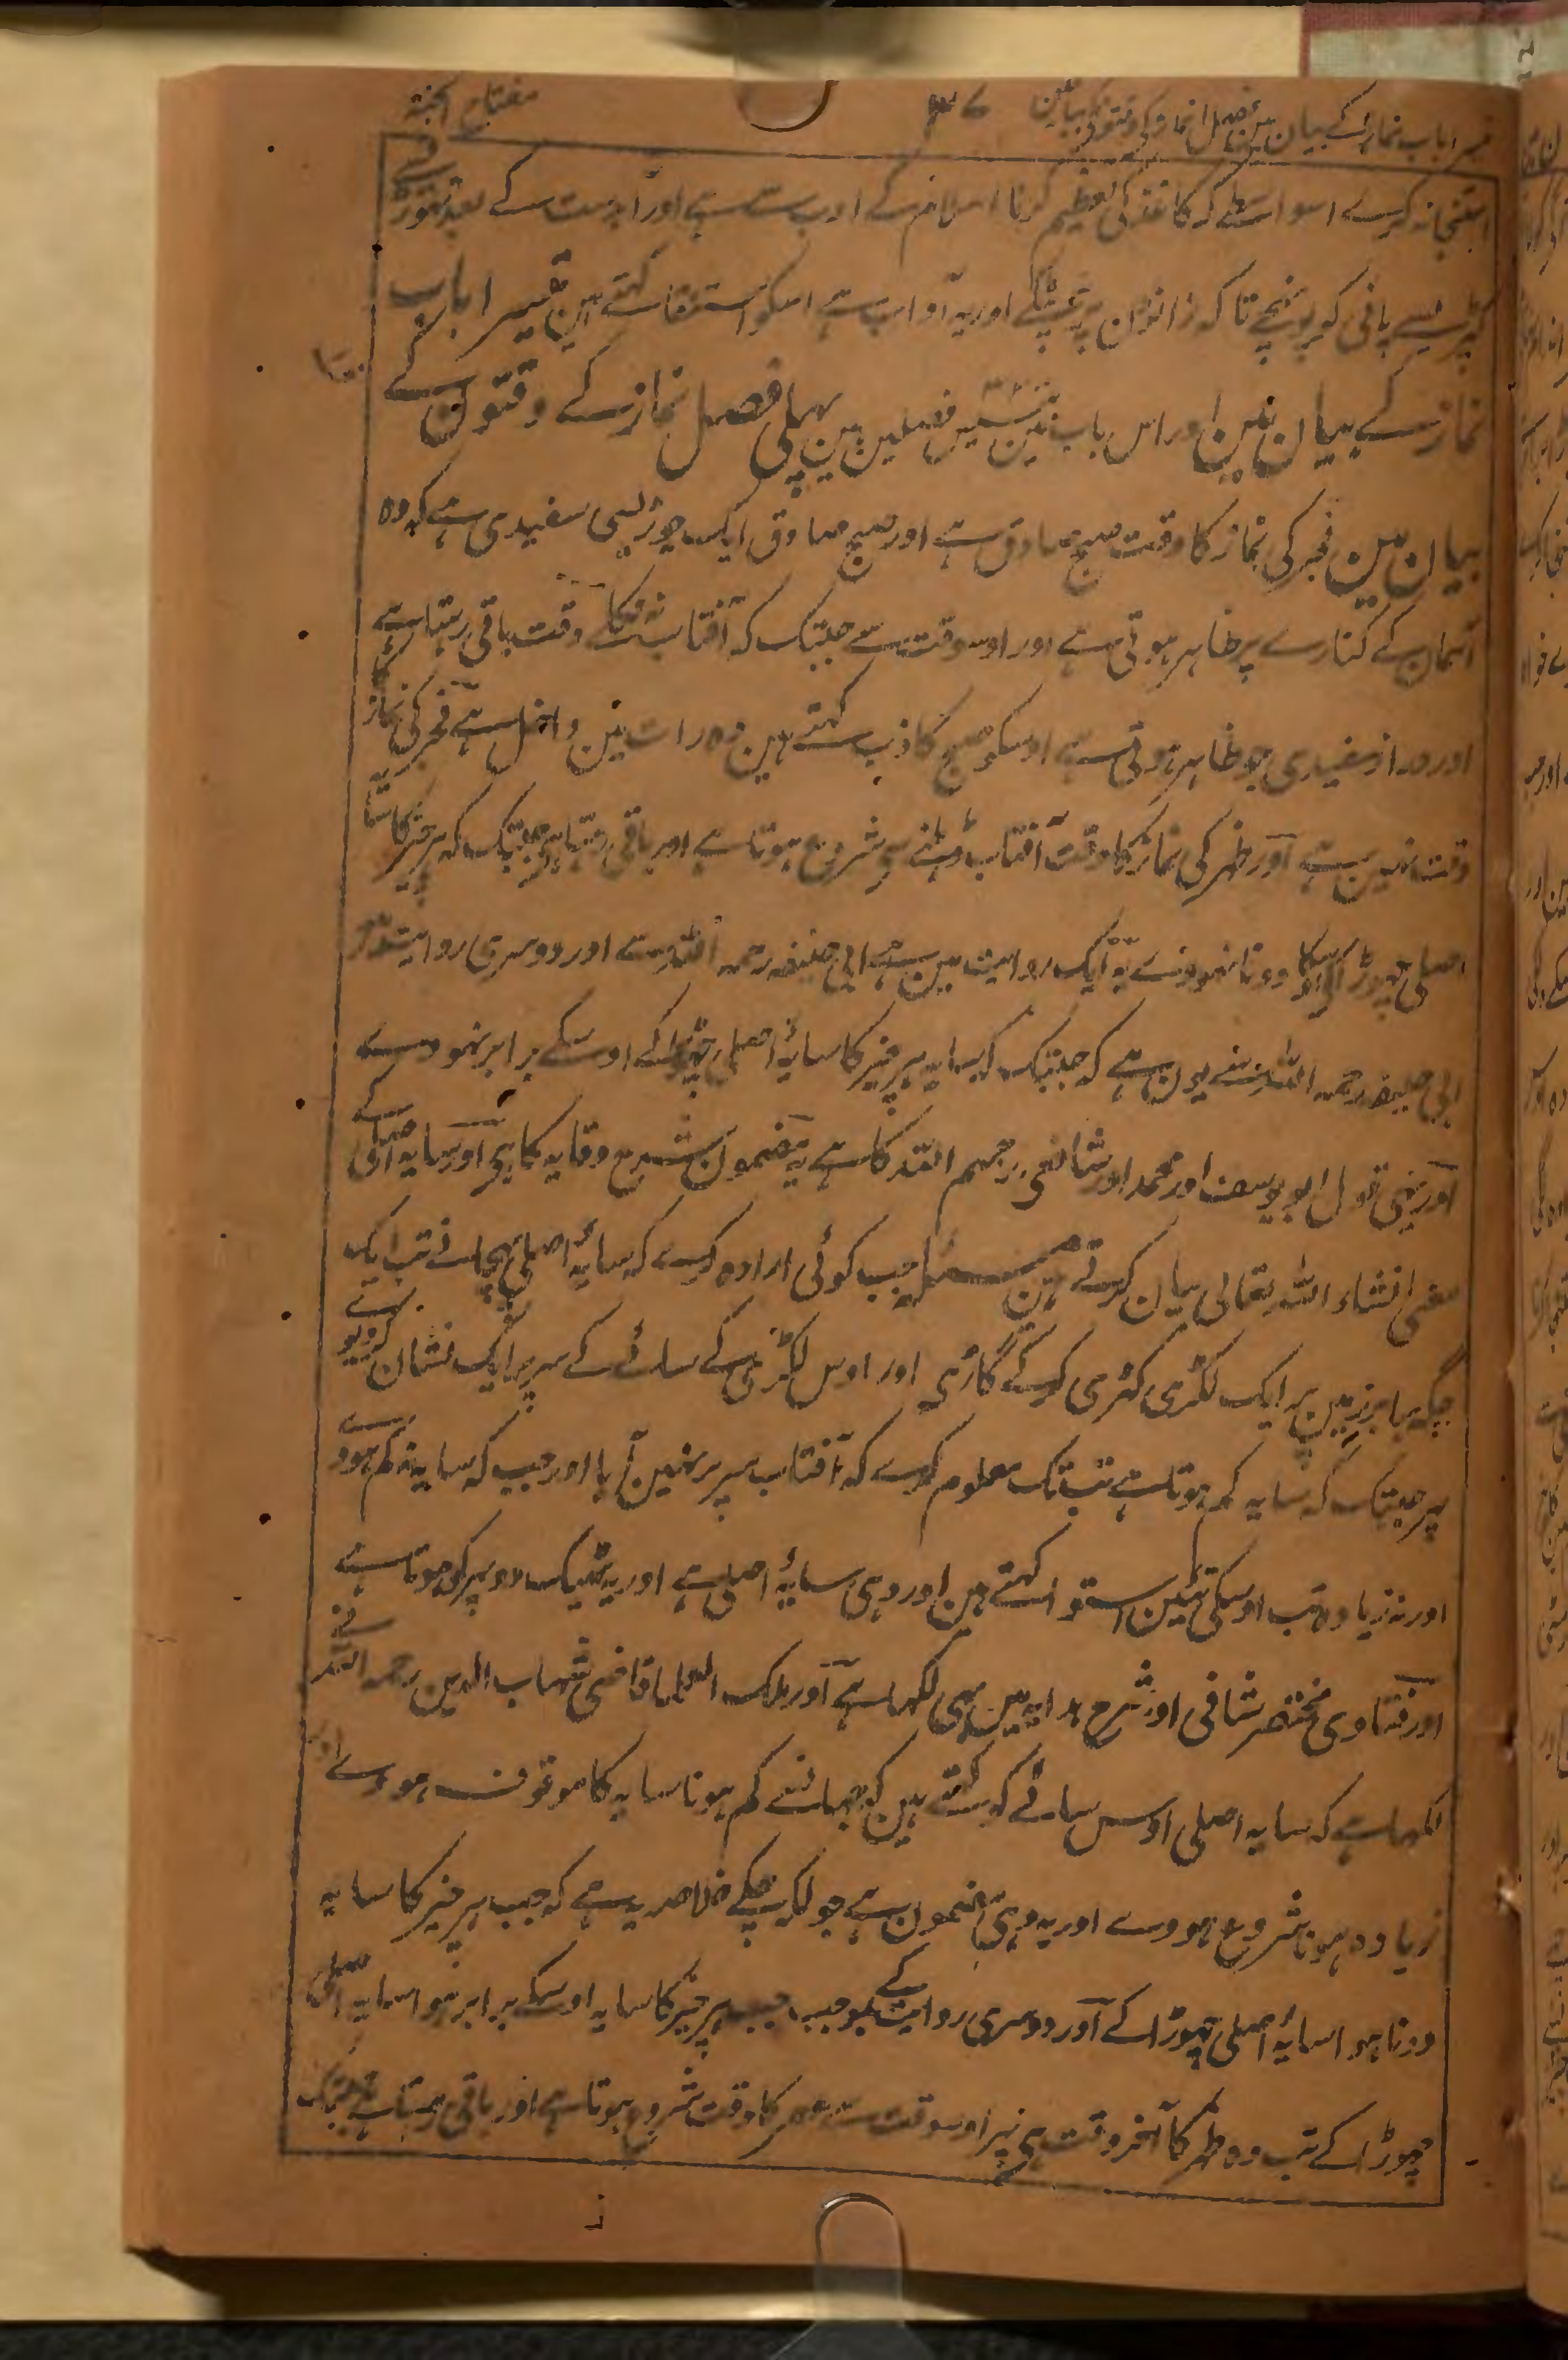 تیسرا باب نماز کے بیان مین فصل نماز کی وقتونکی بیانمین ۳۷ مفتاح الجنۃ
استنجا نہ کرے اسواسطے کہ کاغذ کی تعظیم کرنا اسلام کے ادب سے ہے اور آبدست کے بعد تھوڑے
کپڑیسے پانی کو پونچھے تا کہ زانوان پر نہ ٹپکے اور یہ آداب ہے اسکو استنقا کہتے ہین تیسرا باب
نماز کے بیان مین اور اس باب مین تئیس فصلین ہین پہلی فصل نماز کے وقتون کے
بیان مین فجر کی نماز کا وقت صبح صادق ہے اور صبح صادق ایک چوڑیسی سفیدی ہے کہ وہ
آسمان کے کنارے پر ظاہر ہوتی ہے اور اوسوقت سے جبتک کہ آفتاب نہ نکلے وقت باقی رہتا ہے
اور دراز سفیدی جو ظاہر ہوتی ہے اوسکو صبح کاذب کہتے ہین وہ رات مین داخل ہے فجر کی نماز کا
وقت نہین ہے اور ظہر کی نماز کا وقت آفتاب ڈہلنے سے شروع ہوتا ہے اور باقی رہتا ہے جبتک کہ ہر چیز کا سایہ
اصلی چھوڑ اکے اوسکا دونا نہووے یہ ایک روایت مین ہے ابی حنیفہ رحمہ اللہ سے اور دوسری روایت
ابی حنیفہ رحمہ اللہ سے یون ہے کہ جبتک کہ سایہ ہر چیز کا سایۂ اصلی چھوڑ اکے اوسکے برابر نہووے
اور یہی قول ابو یوسف اور محمد اور شافعی رحمہم اللہ کا ہے یہ مضمون شرح وقایہ کا ہی اور سایہ اصلی کے
معنی انشاء اللہ تعالی بیان کرتے ہین مسئلہ جب کوئی ارادہ کرے کہ سایۂ اصلی پہچانے تب ایک
جگہ برابر زمین پر ایک لکڑی کھڑی کر کے گاڑی اور اوس لکڑی کے سائے کے سر پر ایک نشان کر دیوے
پھر جبتک کہ سایہ کم ہوتا ہے تب تک معلوم کرے کہ آفتاب سر پر نہین آیا اور جب کہ سایہ نہ کم ہووے
اور نہ زیادہ تب اوسکی تئین استوا کہتے ہین اور وہی سایۂ اصلی ہے اور یہ ٹھیک دوپہر کو ہوتا ہے
اور فتاوی مختصر شافی اور شرح ہدایہ مین یہی لکھا ہے اور ملک العلما قاضی شہاب الدین رحمہ اللہ نے
لکھا ہے کہ سایہ اصلی اوس سائے کو کہتے ہین کہ جہانسے کم ہونا سایہ کا موقوف ہووے اور
زیادہ ہونا شروع ہووے اور یہ وہی مضمون ہے جو لکھہ چکے خلاصہ یہ ہے کہ جب ہر چیز کا سایہ
دونا ہوا سایۂ اصلی چھوڑ اکے اور دوسری روایت کے بموجب جب ہر چیز کا سایہ اوسکے برابر ہوا سایہ اصلی
چھوڑ اکے تب وہ ظہر کا آخر وقت ہی پھر اوسوقت سے عصر کا وقت شروع ہوتا ہے اور باقی رہتا ہے جبتک